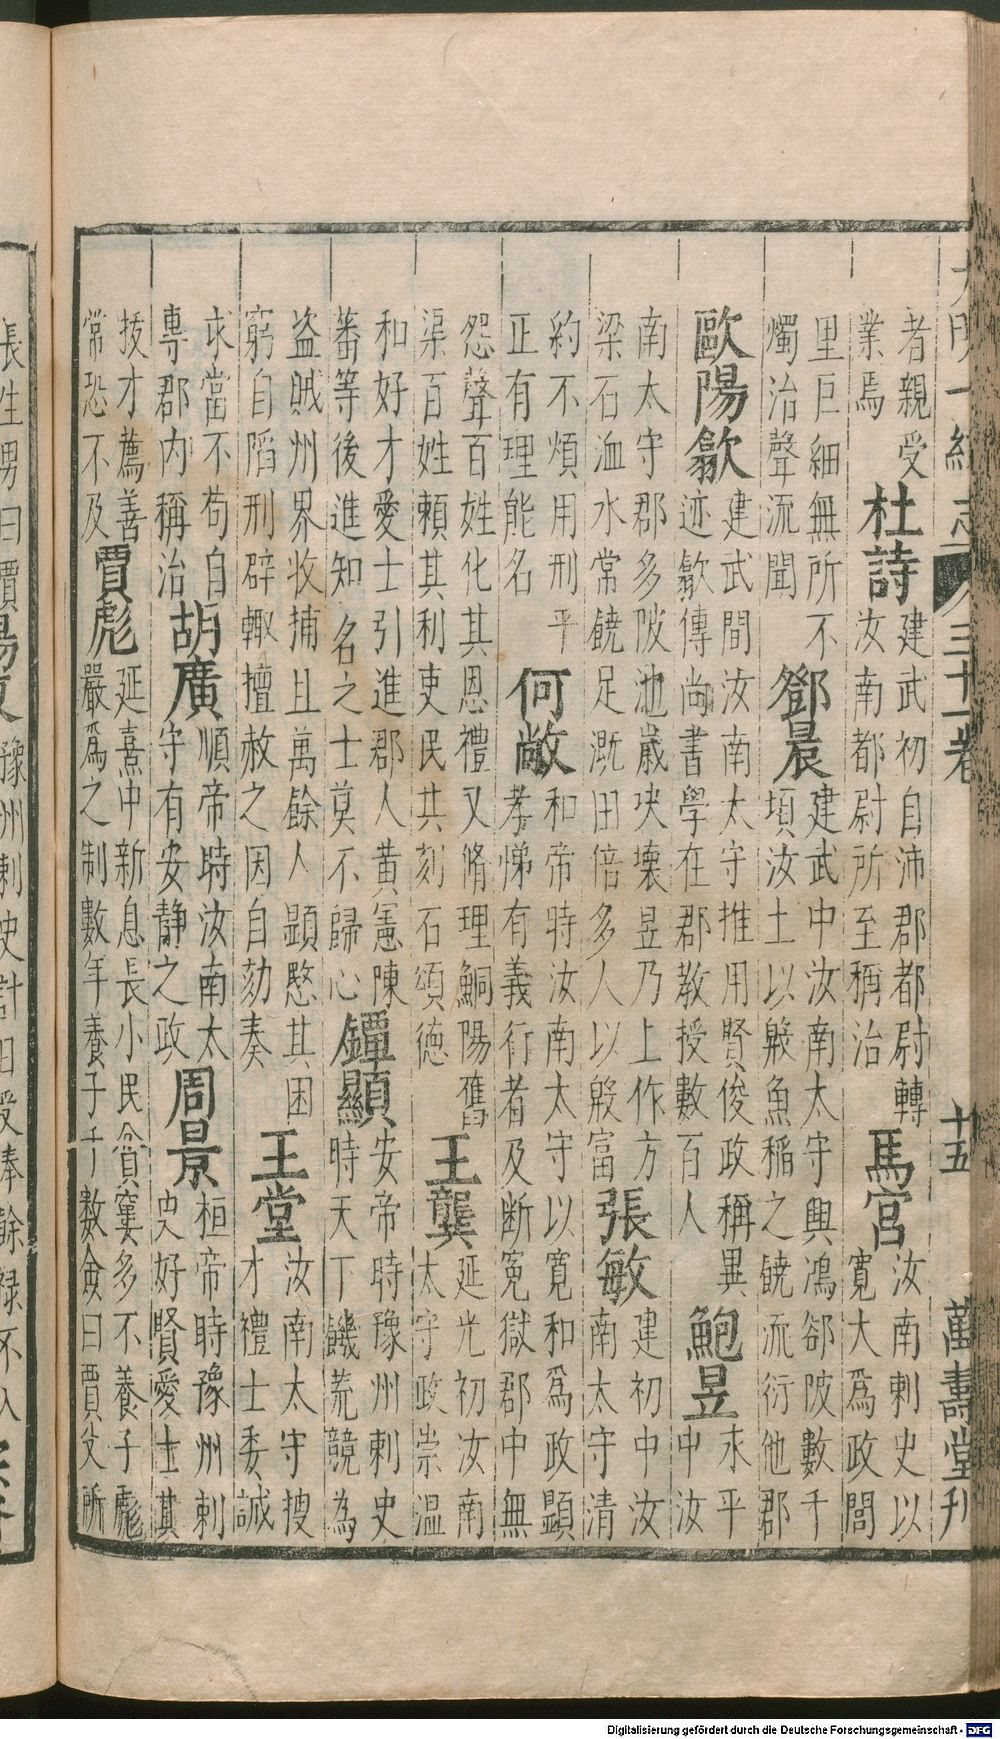 大明一統志 三十一卷 十五 萬壽堂刊
者親受
業焉
杜詩
建武初自沛郡都尉轉
汝南都尉所至稱治
馬宮
汝南刺史以
寬大爲政閭
里巨細無所不
燭治聲流聞
鄧晨
建武中汝南太守興鴻郤陂數千
頃汝土以殷魚稻之饒流衍他郡
歐陽歙
建武間汝南太守推用賢俊政稱異
迹歙傳尚書學在郡教授數百人
鮑昱
永平
中汝
南太守郡多陂池歲決壞昱乃上作方
梁石洫水常饒足溉田倍多人以殷富
張敏
建初中汝
南太守清
約不煩用刑平
正有理能名
何敞
和帝時汝南太守以寬和爲政顯
孝悌有義行者及断冤獄郡中無
怨聲百姓化其恩禮又脩理鮦陽舊
渠百姓賴其利吏民共刻石頌德
王龔
延光初汝南
太守政崇温
和好才愛士引進郡人黃憲陳
蕃等後進知名之士莫不歸心
鐔顯
安帝時豫州刺史
時天下饑荒競為
盗賊州界收捕且萬餘人顯愍其困
窮自陷刑辟輙擅赦之因自劾奏
王堂
汝南太守搜
才禮士委誠
求當不苟自
專郡内稱治
胡廣
順帝時汝南太
守有安靜之政
周景
桓帝時豫州刺
史好賢愛士其
拔才薦善
常恐不及
賈彪
延熹中新息長小民貧窶多不養子彪
嚴爲之制數年養子千數僉曰賈父所
長生男曰賈
豫州刺史計日受奉餘祿不入
Digitalisierung gefördert durch die Deutsche Forschungsgemeinschaft - DFG